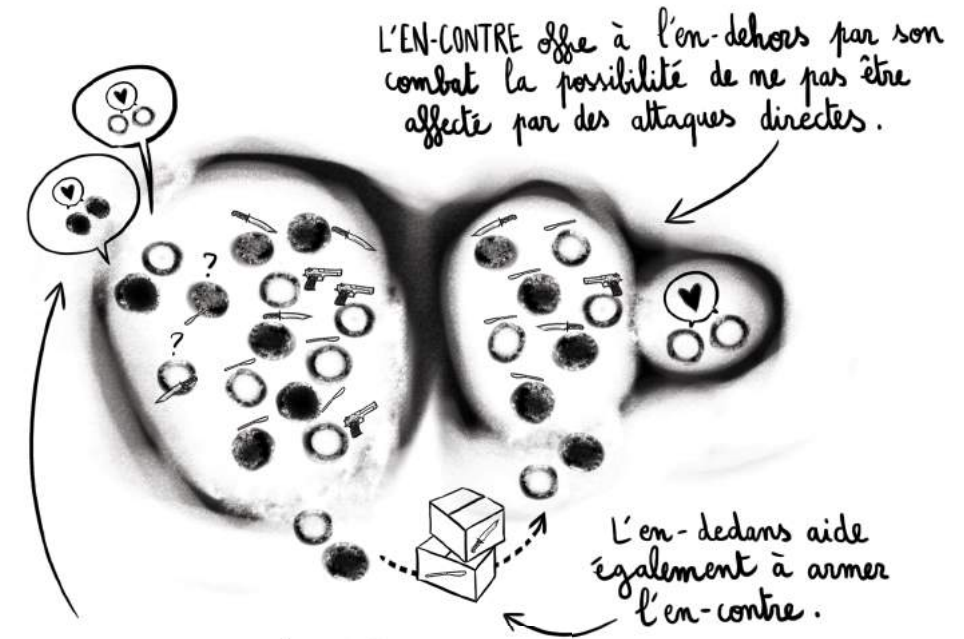 L'EN-CONTRE offre à l'en-dehors par son
combat la possibilité de ne pas être
affecté par des attaques directes.
?
?
L'en-dedans aide
également à armer
l'en-contre.